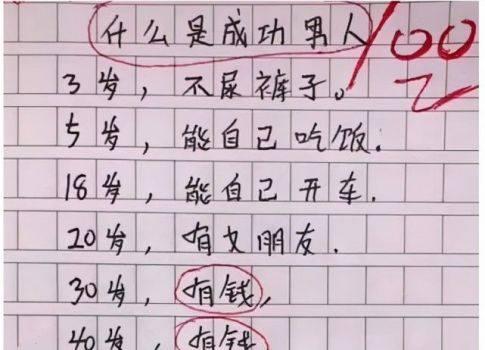 什么是成功男人
100
3岁，不尿裤子。
5岁，能自己吃饭.
18岁，能自己开车.
20岁，有女朋友.
30岁，有钱，
40岁，有钱